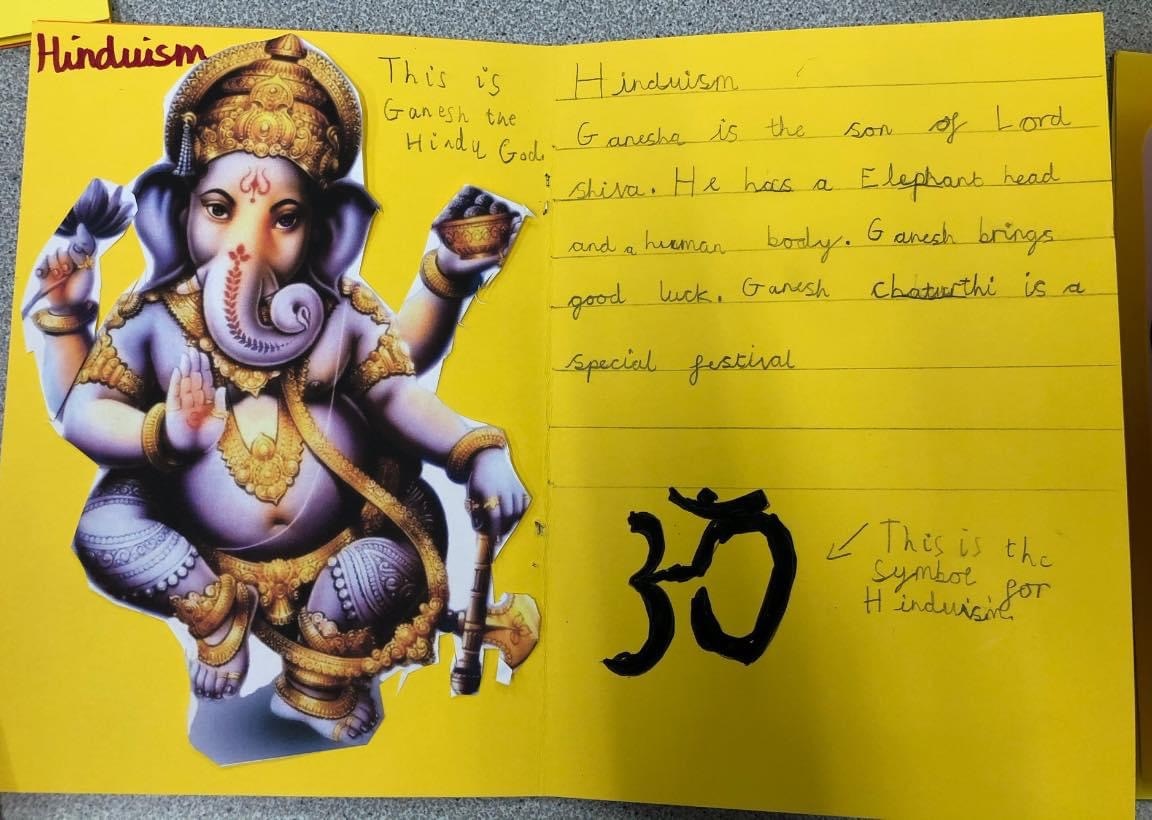 Hinduism
This is
Ganesh the
Hindu God.
Hinduism
Ganesha is the son of Lord
shiva. He has a Elephant head
and a human body. Ganesh brings
good luck. Ganesh chaturthi is a
special festival
ॐ
This is the
symbol for
Hinduism.